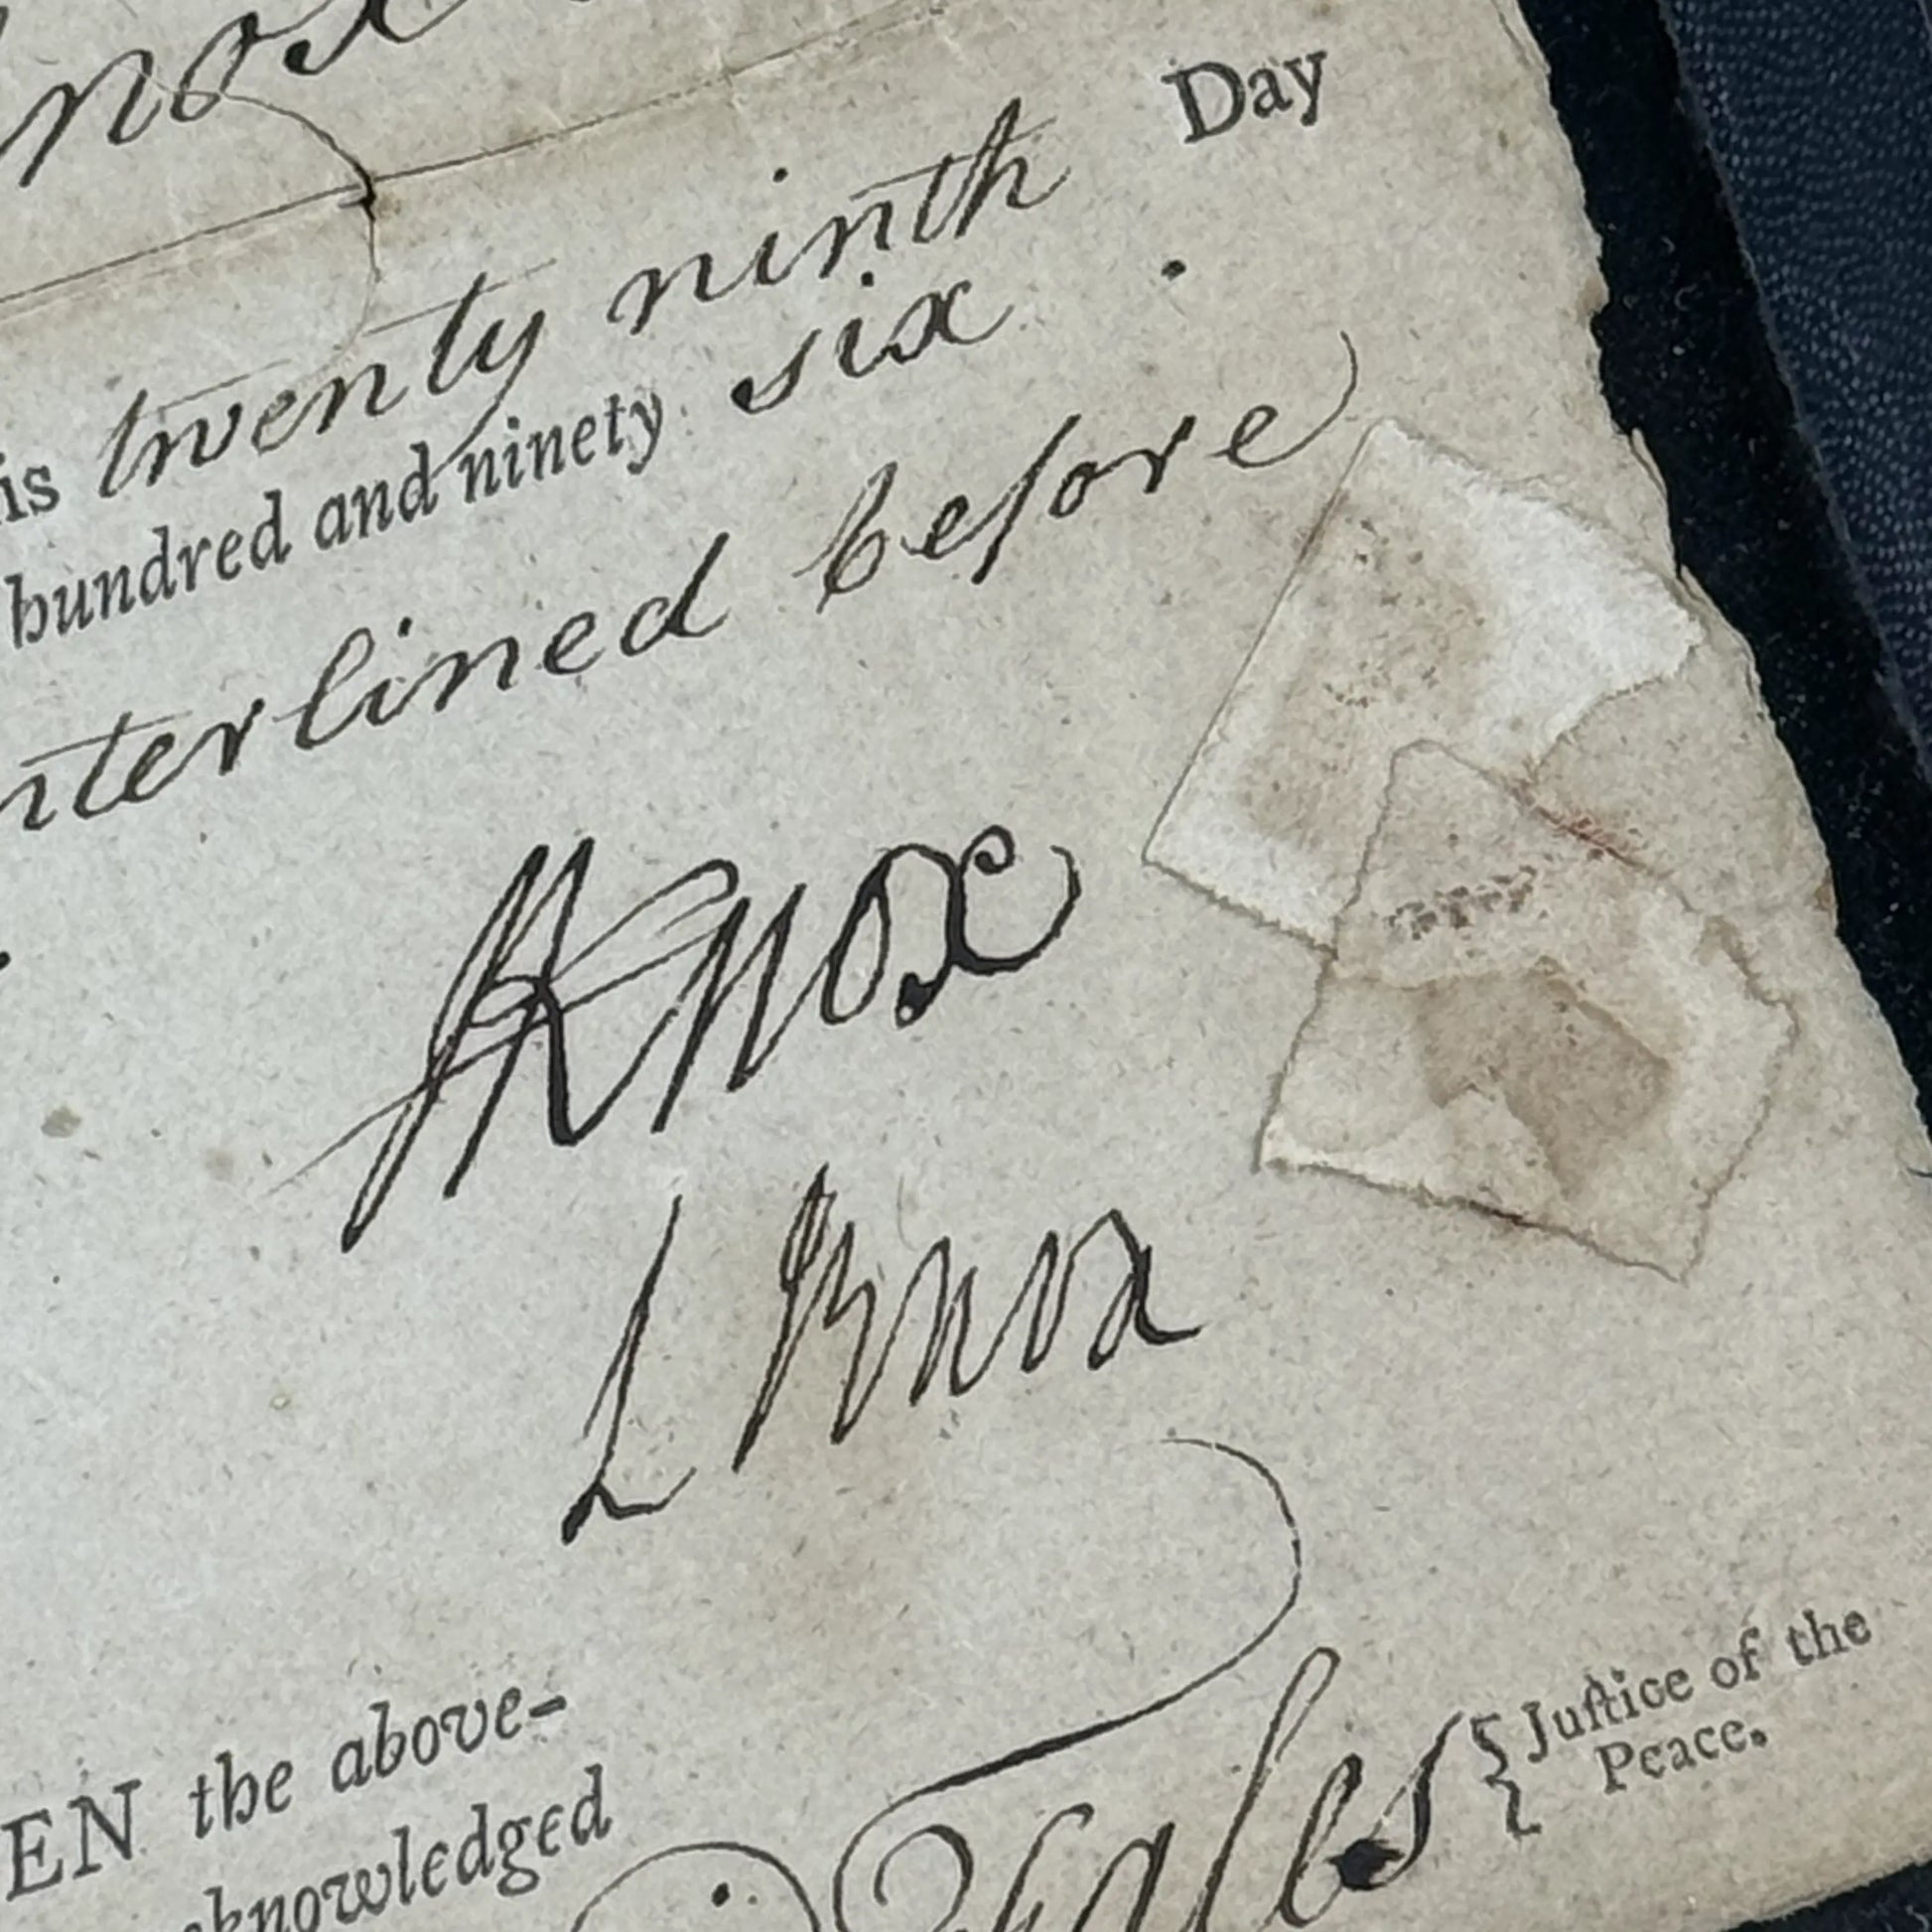 nox
Day
is twenty ninth
hundred and ninety six .
nterlined before
HKnox
L Knox
EN the above-
cknowledged
Fales { Juſtice of the
Peace.